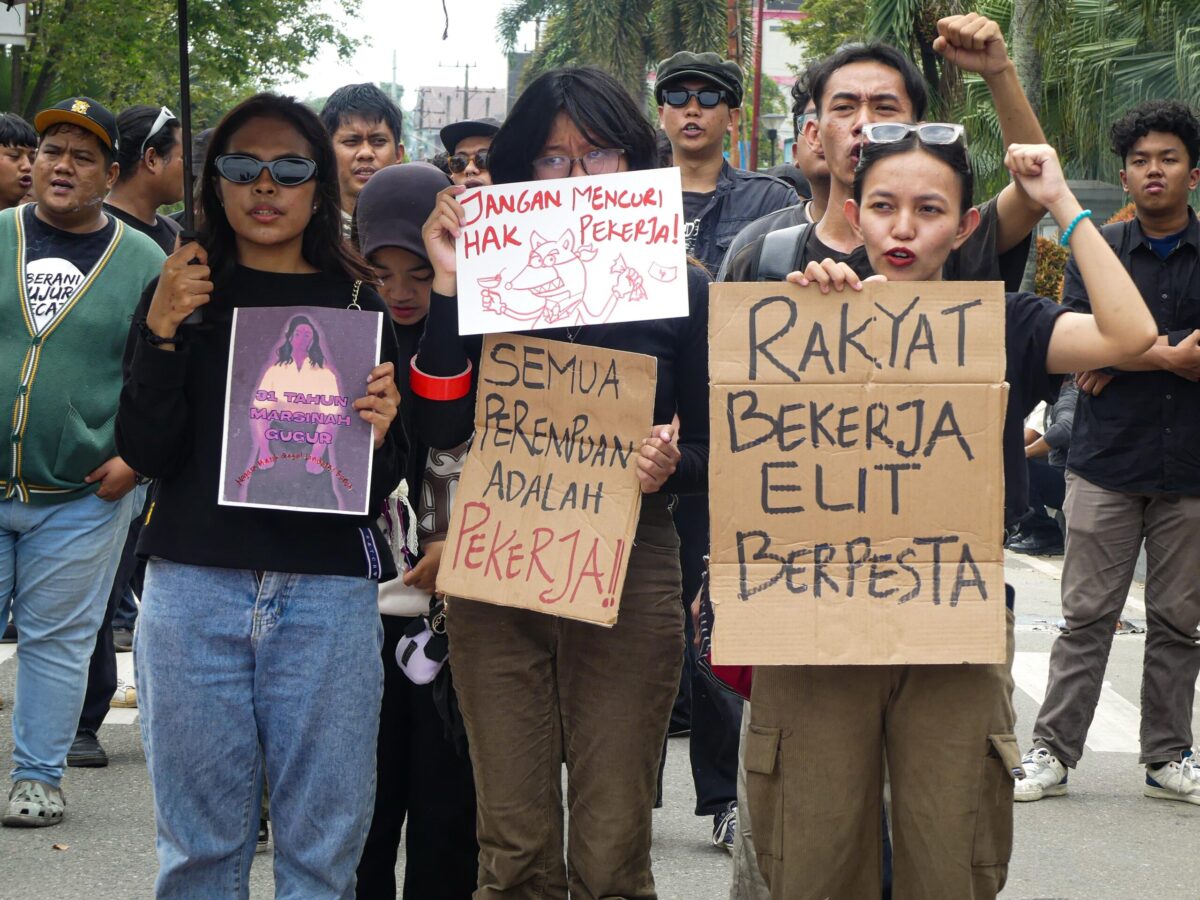 BERANI
JUJUR
31 TAHUN
MARSINAH
GUGUR
JANGAN MENCURI
HAK PEKERJA!
SEMUA
PEREMPUAN
ADALAH
PEKERJA!!
RAKYAT
BEKERJA
ELIT
BERPESTA